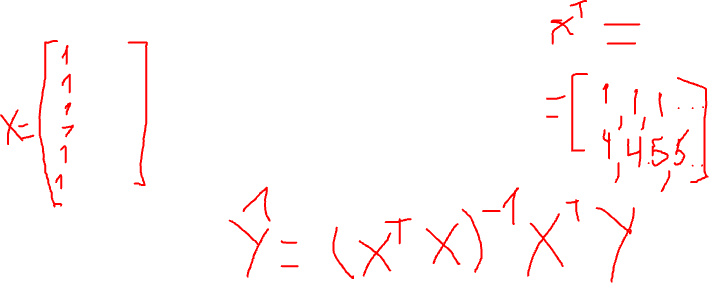 X = [1
1
1
1
1
1]
X^T =
= [1, 1, 1 ...
4, 4.5, 5...]
Ŷ = (X^T X)^-1 X^T Y